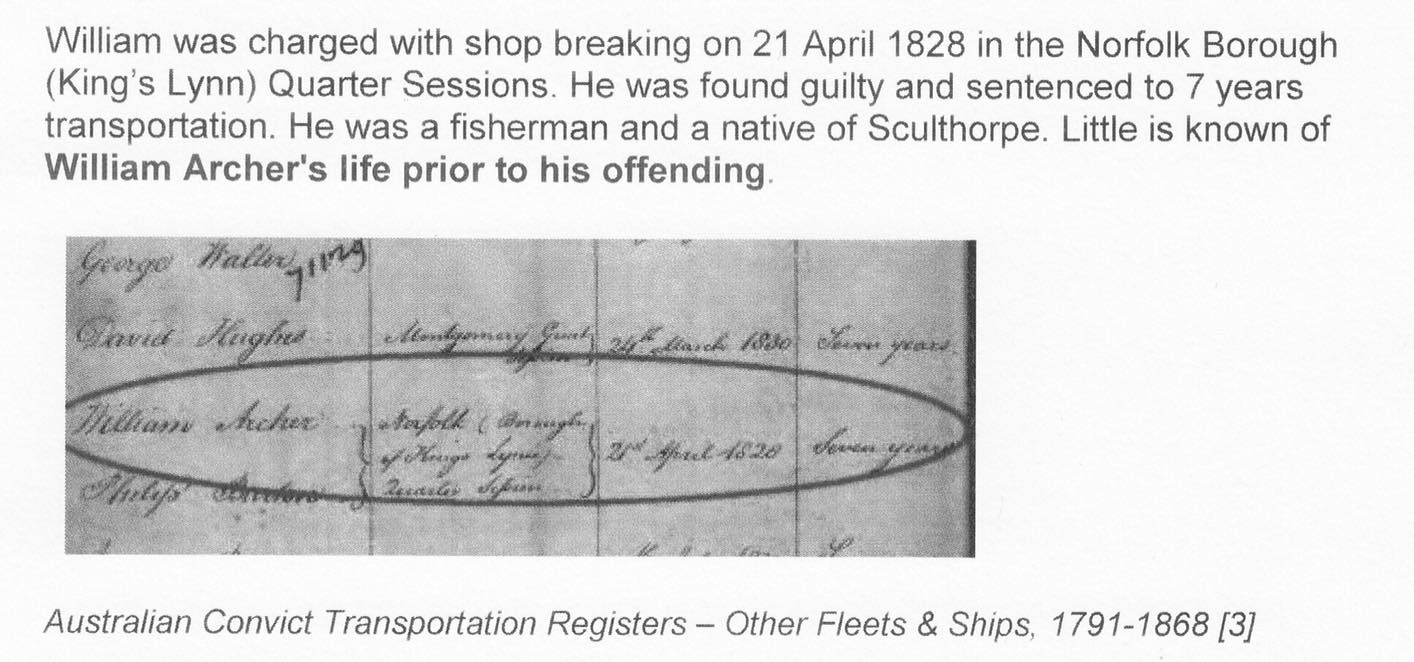 William was charged with shop breaking on 21 April 1828 in the Norfolk Borough
(King's Lynn) Quarter Sessions. He was found guilty and sentenced to 7 years
transportation. He was a fisherman and a native of Sculthorpe. Little is known of
William Archer's life prior to his offending.
George Walter
David Hughes Montgomery 24th March 1830 Seven years
William Archer Norfolk (Borough
of Kings Lynn) 21st April 1828 Seven years
Philip Quarter Session
Australian Convict Transportation Registers – Other Fleets & Ships, 1791-1868 [3]